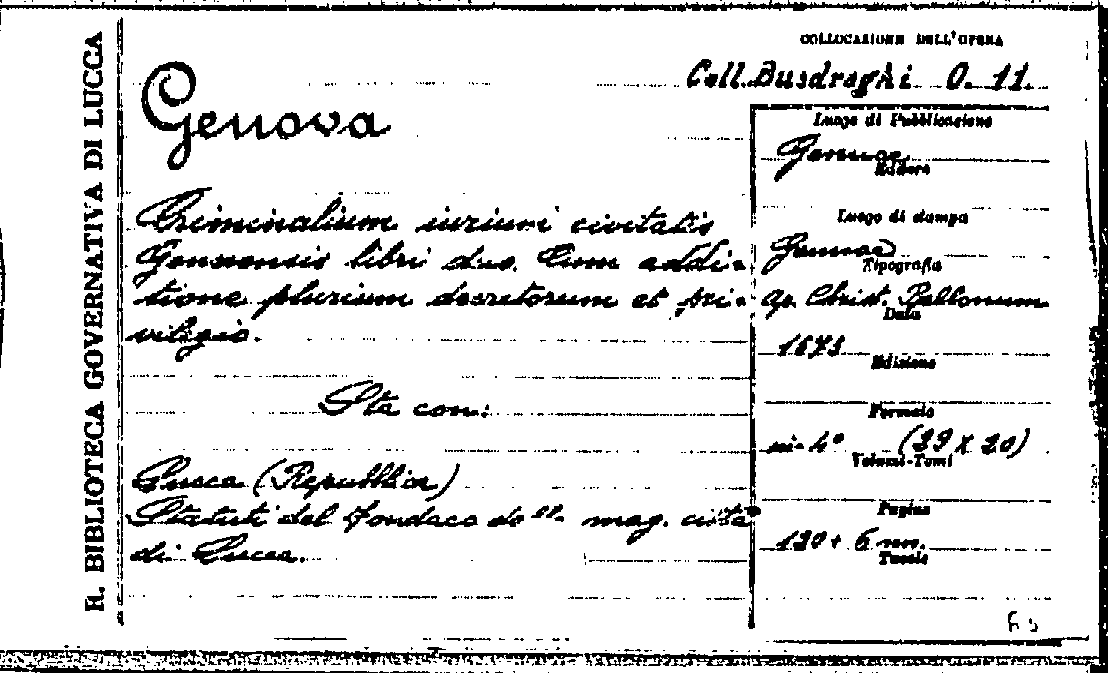 R. BIBLIOTECA GOVERNATIVA DI LUCCA
COLLOCAZIONE DELL'OPERA
Coll. Busdraghi O. 11.
Genova
Criminalium iurium civitatis
Genuensis libri duo. Cum addi-
tione plurium decretorum et pri-
vilegio.
Sta con:
Lucca (Repubblica)
Statuti del Fondaco de mag. città
di Lucca.
Luogo di Pubblicazione
Genuae
Editore
Luogo di stampa
Genuae
Tipografia
ap. Christ. Bellonum
Data
1573
Edizione
Formato
in-4° (29 X 20)
Volumi-Tomi
Pagine
120 + 6 nn.
Tavole